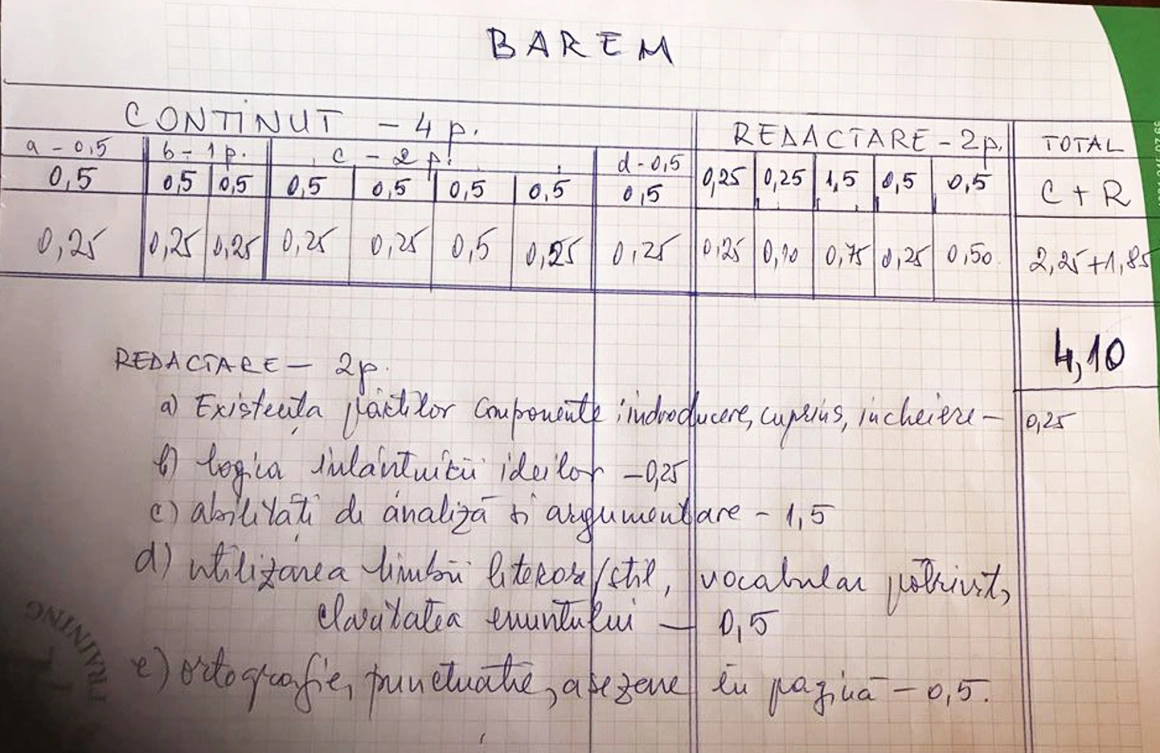 BAREM
CONTINUT - 4 p. REDACTARE - 2p. TOTAL
a - 0,5 b - 1 p. c - 2 p. d - 0,5
0,5 0,5 0,5 0,5 0,5 0,5 0,5 0,5 0,25 0,25 1,5 0,5 0,5 C + R
0,25 0,25 0,25 0,25 0,25 0,5 0,25 0,25 0,25 0,10 0,75 0,25 0,50 2,25+1,85
4,10
REDACTARE - 2p.
a) Existența părților componente: indroducere, cuprins, incheiere - 0,25
b) logica inlantuirii ideilor - 0,25
c) abilități de analiză și argumentare - 1,5
d) utilizarea limbii literare/stil, vocabular potrivit,
claritatea enuntului - 0,5
e) ortografie, punctuatie, asezare in pagină - 0,5.
TRAINING